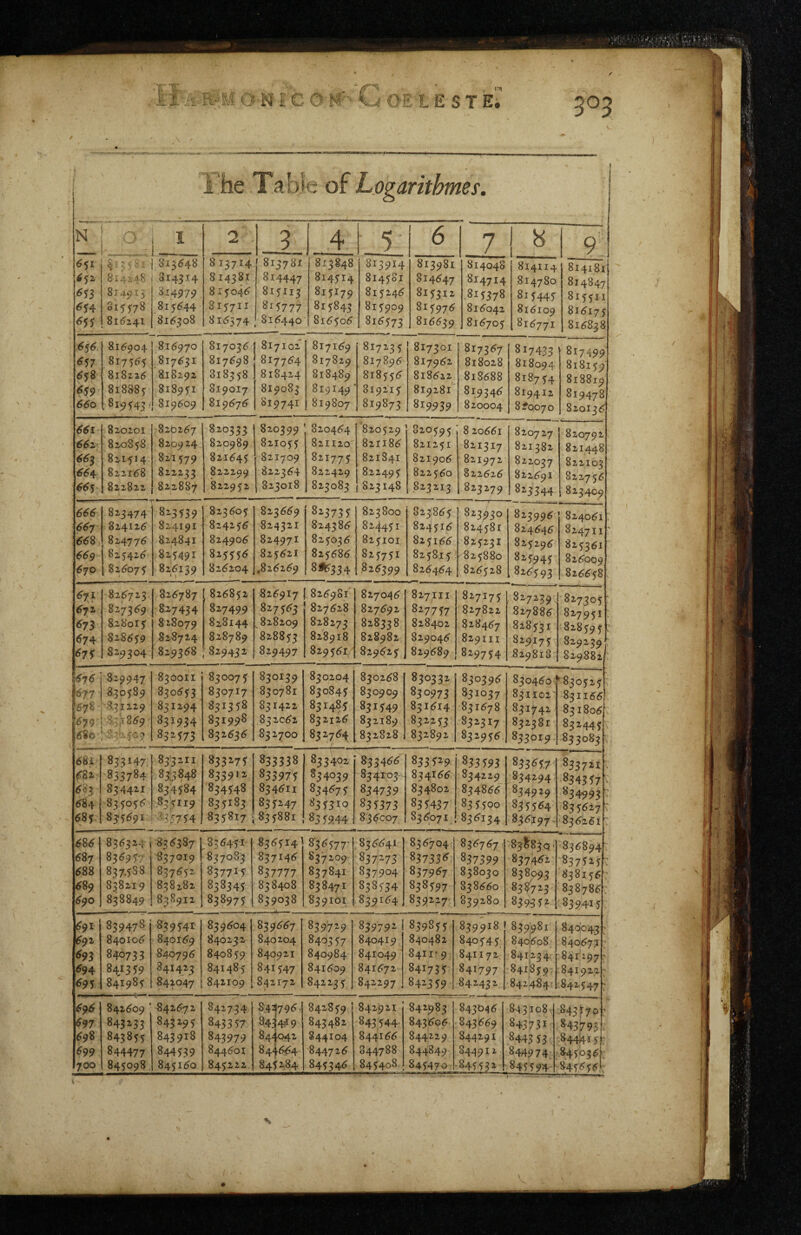 HARMONICON COELESTE. 303
The Table of Logarithmes.
N 0 1 2 3 4 5 6 7 8 9
651 813581 813648 813714 813781 813848 813914 813981 814048 814114 814181
652 814248 814314 814381 814447 814514 814581 814647 814714 814780 814847
653 814913 814979 815046 815113 815179 815246 815312 815378 815445 815511
654 815578 815644 815711 815777 815843 815909 815976 816042 816109 816175
655 816241 816308 816374 816440 816506 816573 816639 816705 816771 816838
656 816904 816970 817036 817102 817169 817235 817301 817367 817433 817499
657 817565 817631 817698 817764 817829 817896 817962 818028 818094 818159
658 818226 818292 818358 818424 818489 818556 818622 818688 818754 818819
659 818885 818951 819017 819083 819149 819215 819281 819346 819412 819478
660 819543 819609 819676 819741 819807 819873 819939 820004 820070 820136
661 820201 820267 820333 820399 820464 820529 820595 820661 820727 820792
662 820858 820924 820989 821055 821120 821186 821251 821317 821382 821448
663 821514 821579 821645 821709 821775 821841 821906 821972 822037 822103
664 822168 822233 822299 822364 822429 822495 822560 822626 822691 822756
665 822822 822887 822952 823018 823083 823148 823213 823279 823344 823409
666 823474 823539 823605 823669 823735 823800 823865 823930 823996 824061
667 824126 824191 824256 824321 824386 824451 824516 824581 824646 824711
668 824776 824841 824906 824971 825036 825101 825166 825231 825296 825361
669 825426 825491 825556 825621 825686 825751 825815 825880 825945 826009
670 826075 826139 826204 826269 826334 826399 826464 826528 826593 826658
671 826723 826787 826852 826917 826981 827046 827111 827175 827239 827305
672 827369 827434 827499 827563 827628 827692 827757 827822 827886 827951
673 828015 828079 828144 828209 828273 828338 828402 828467 828531 828595
674 828659 828724 828789 828853 828918 828982 829046 829111 829175 829239
675 829304 829368 829432 829497 829561 829625 829689 829754 829818 829882
676 829947 830011 830075 830139 830204 830268 830332 830396 830460 830525
677 830589 830653 830717 830781 830845 830909 830973 831037 831102 831166
678 831229 831294 831358 831422 831485 831549 831614 831678 831742 831806
679 831869 831934 831998 832062 832126 832189 832253 832317 832381 832445
680 832509 832573 832636 832700 832764 832828 832892 832956 833019 833083
681 833147 833211 833275 833338 833402 833466 833529 833593 833657 833721
682 833784 833848 833912 833975 834039 834103 834166 834229 834294 834357
683 834421 834584 834548 834611 834675 834739 834802 834866 834929 834993
684 835056 835119 835183 835247 835310 835373 835437 835500 835564 835627
685 835691 835754 835817 835881 835944 836007 836071 836134 836197 836261
686 836324 836387 836451 836514 836577 836641 836704 836767 836830 836894
687 836957 837019 837083 837146 837209 837273 837336 837399 837462 837525
688 837588 837652 837715 837777 837841 837904 837967 838030 838093 838156
689 838219 838282 838345 838408 838471 838534 838597 838660 838723 838786
690 838849 838912 838975 839038 839101 839164 839227 839280 839352 839415
691 839478 839541 839604 839667 839729 839792 839855 839918 839981 840043
692 840106 840169 840232 840204 840357 840419 840482 840545 840608 840671
693 840733 840796 840859 840921 840984 841049 841109 841172 841234 841297
694 841359 841423 841485 841547 841609 841672 841735 841797 841859 841922
695 841985 842047 842109 842172 842235 842297 842359 842432 842484 842547
696 842609 842672 842734 842796 842859 842921 842983 843046 843108 843170
697 843233 843295 843357 843419 843482 843544 843606 843669 843731 843793
698 843855 843918 843979 844042 844104 844166 844229 844291 844353 844415
699 844477 844539 844601 844664 844726 844788 844849 844912 844974 845036
700 845098 845160 845222 845284 845346 845408 845470 845532 845594 845656